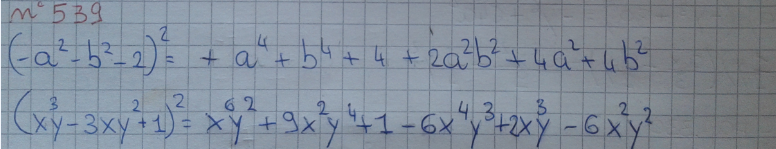 n° 539
(-a²-b²-2)² = + a⁴ + b⁴ + 4 + 2a²b² + 4a² + 4b²
(x³y - 3xy² + 1)² = x⁶y² + 9x²y⁴ + 1 - 6x⁴y³ + 2x³y - 6x²y²